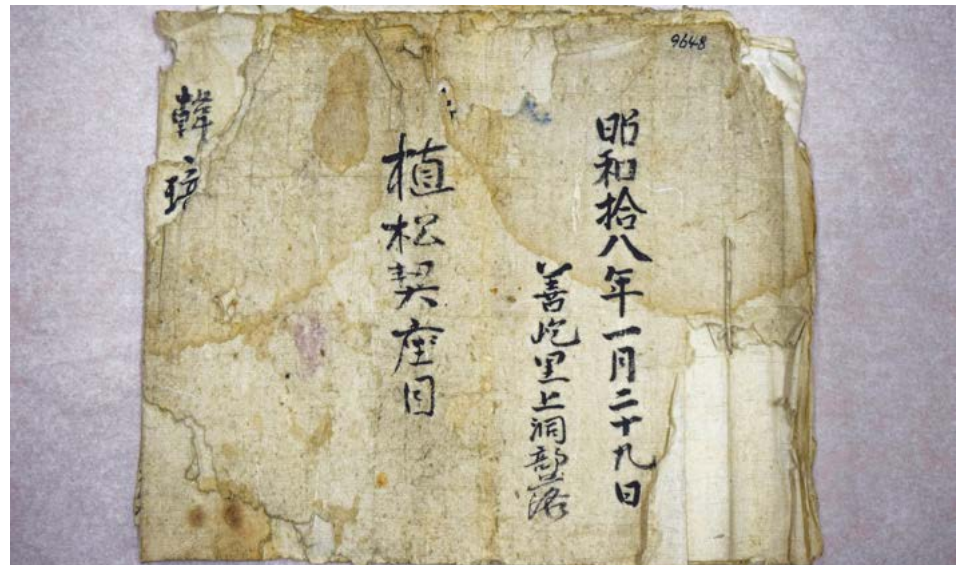 9648
昭和拾八年一月二十九日
善屹里上洞部落
植松契座目
韓